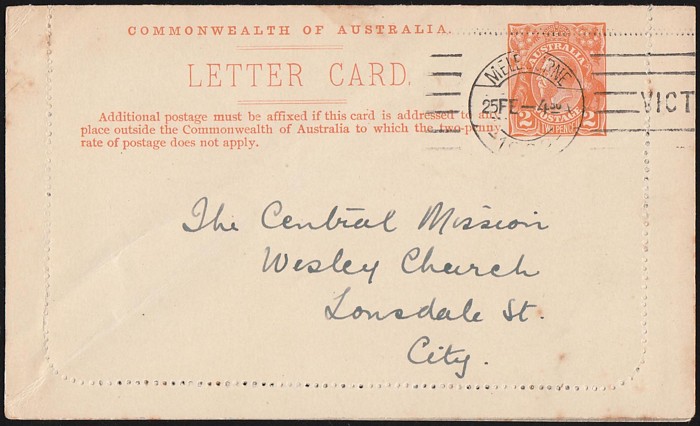 COMMONWEALTH OF AUSTRALIA.
LETTER CARD.
Additional postage must be affixed if this card is addressed to any
place outside the Commonwealth of Australia to which the two-penny
rate of postage does not apply.
AUSTRALIA
POSTAGE
2 TWO PENCE 2
MELBOURNE
25 FE - 4 30
VICT
The Central Mission
Wesley Church
Lonsdale St.
City.